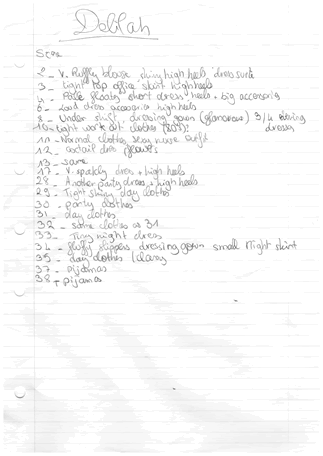 Deblah
Scene
2 - V. Ruffly blouse shiny high heels, dress suite
3 - tight top office skirt high heels
4 - Pale floaty short dress, heels + big accessoris
6 - Loud dress accessories high heels
8 - Under shirt, dressing gown (glamorous) 3/4 evening dress
10 - tight work out clothes (80's)
11 - Normal clothes sexy nurse outfit
12 - coctail dres flowers
13 - same
17 - V. sparkly dres + high heels
28 - Another party dress + high heels
29 - Tight shiny day clothes
30 - party clothes
31 - day clothes
32 - same clothes as 31
33 - Tiny night dress
34 - fluffy slippers dressing gown small Night shirt
35 - day clothes (classy
37 - pijamas
38 - pijamas